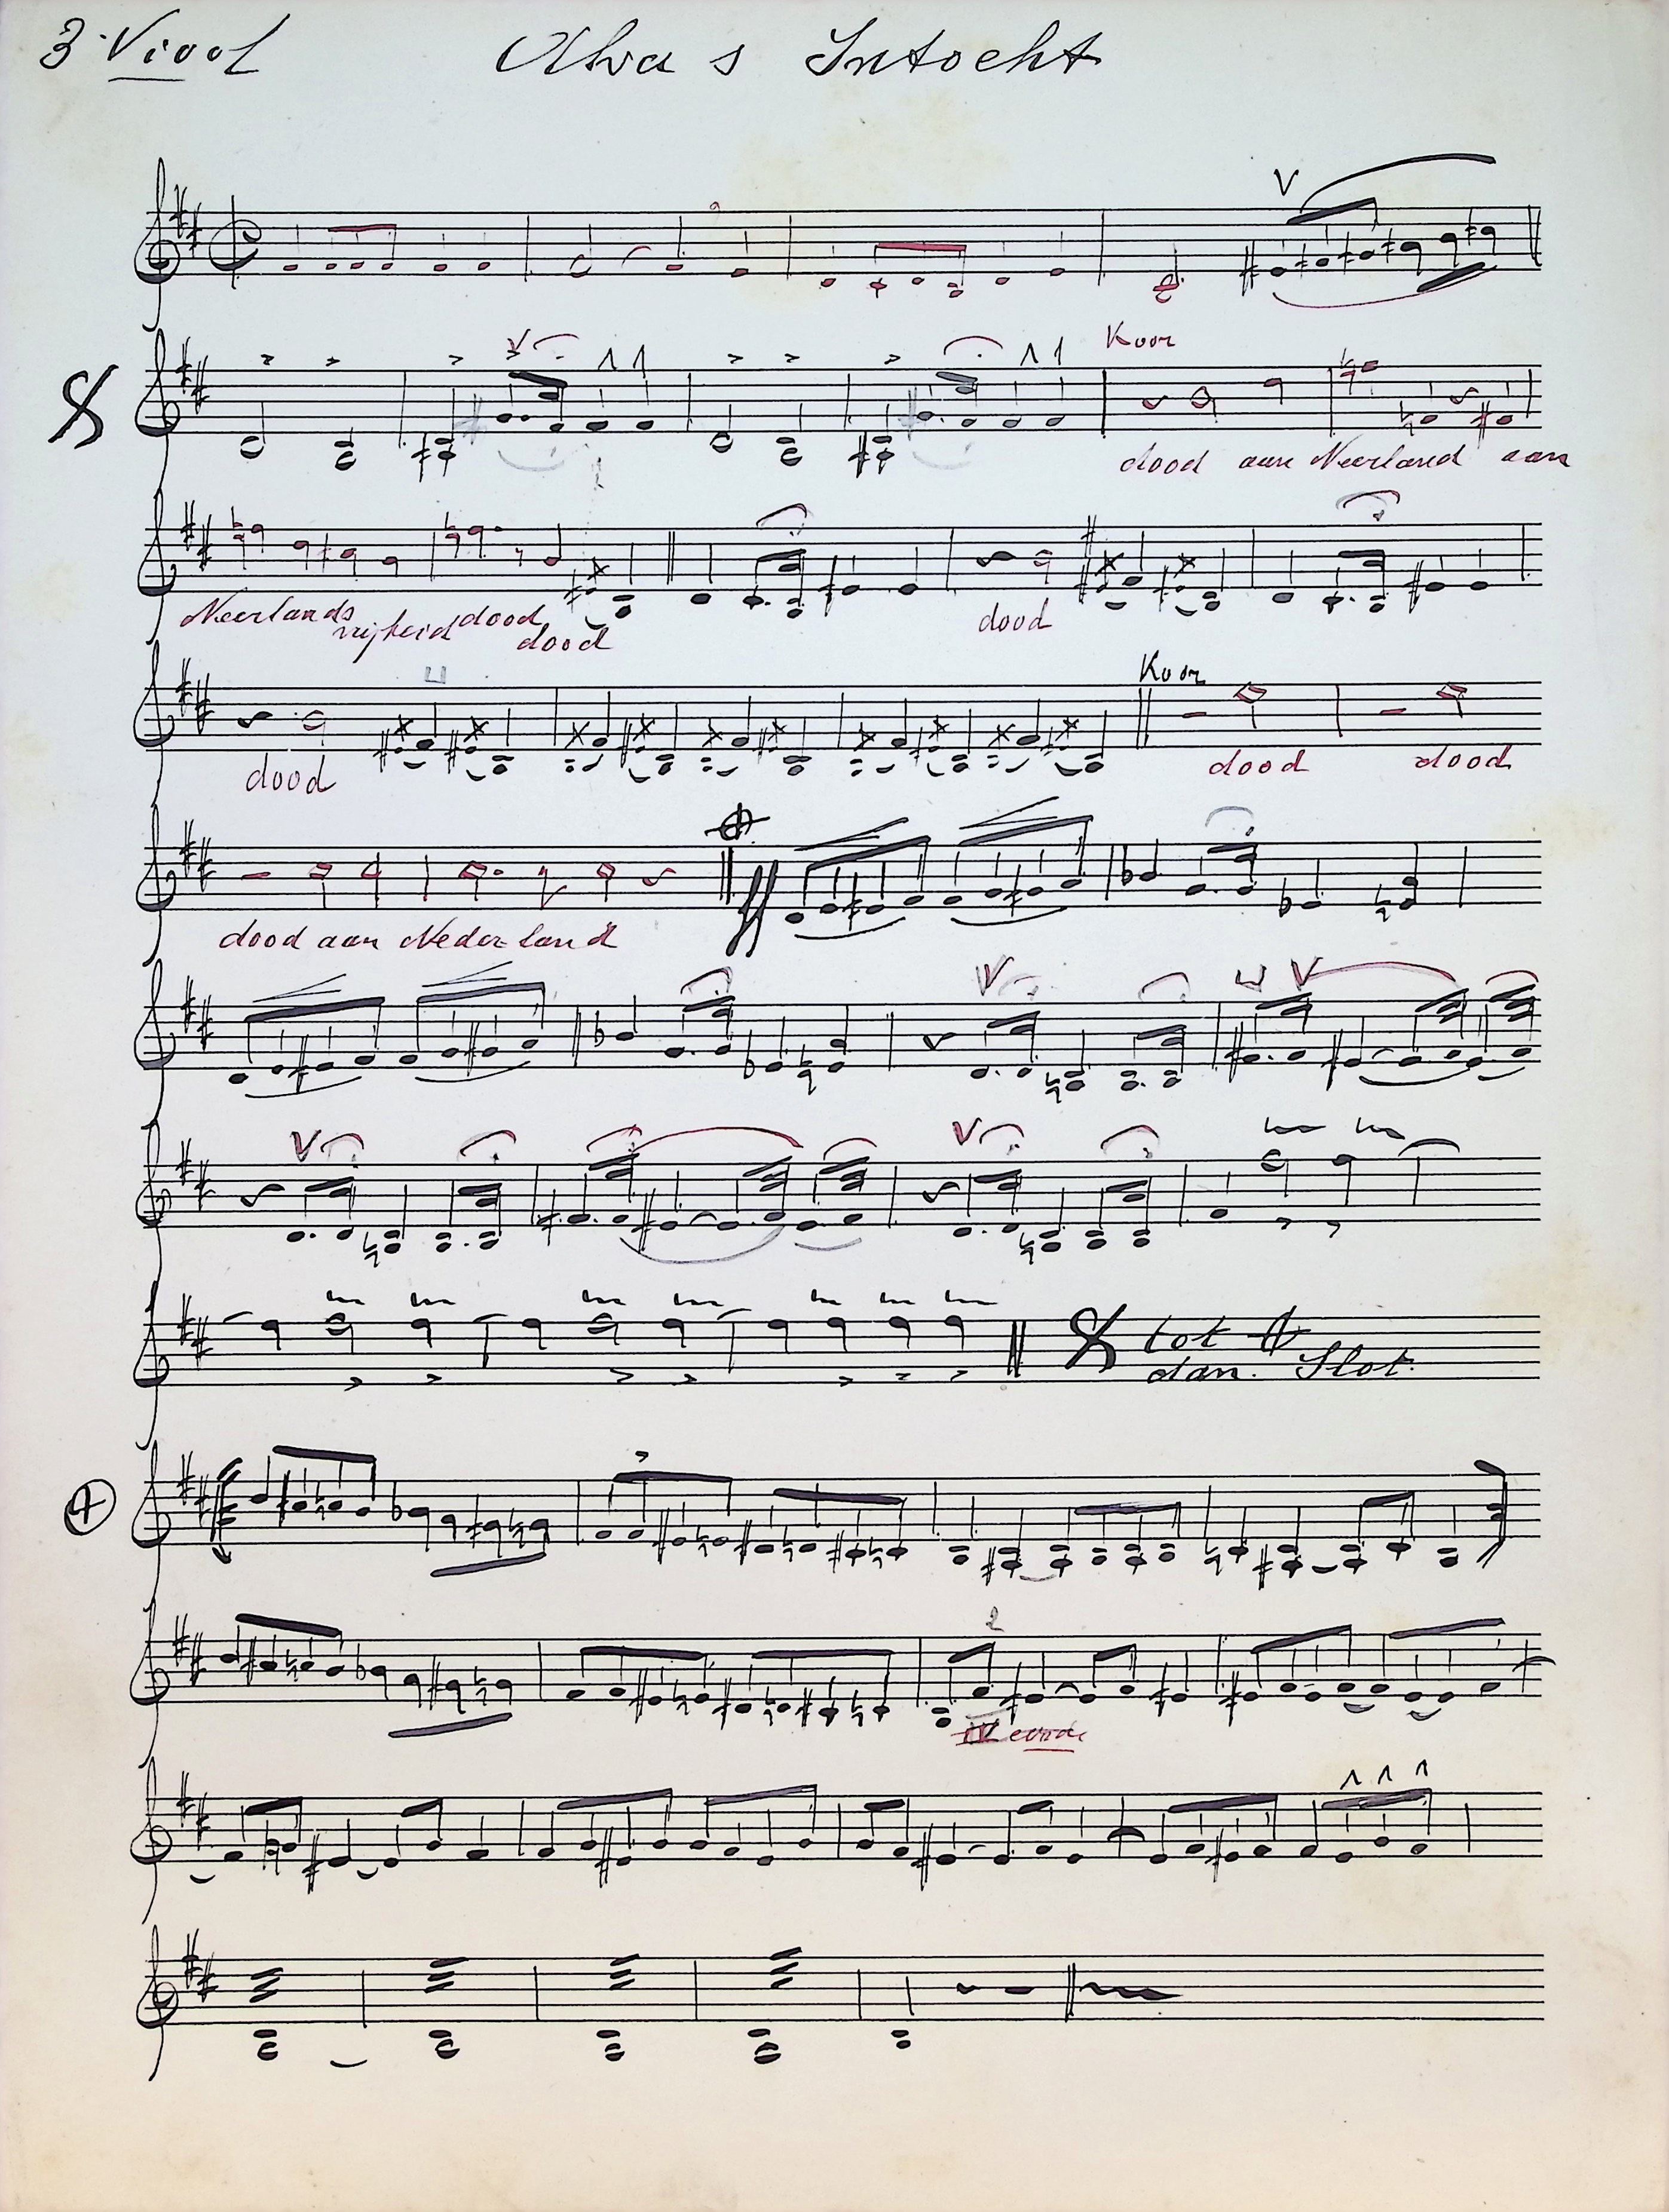 3e Viool Alva s Intocht
Koor
dood aan Neerland aan
Neerlands vrijheid dood dood
dood
Koor
dood dood dood
dood aan Nederland
ff
tot
dan. Slot.
2
IV